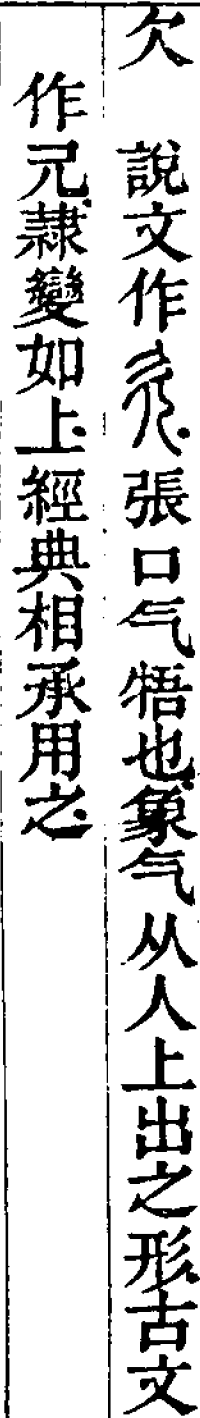 欠　說文作𣣓張口气啎也象气从人上出之形古文
作旡隸變如上經典相承用之